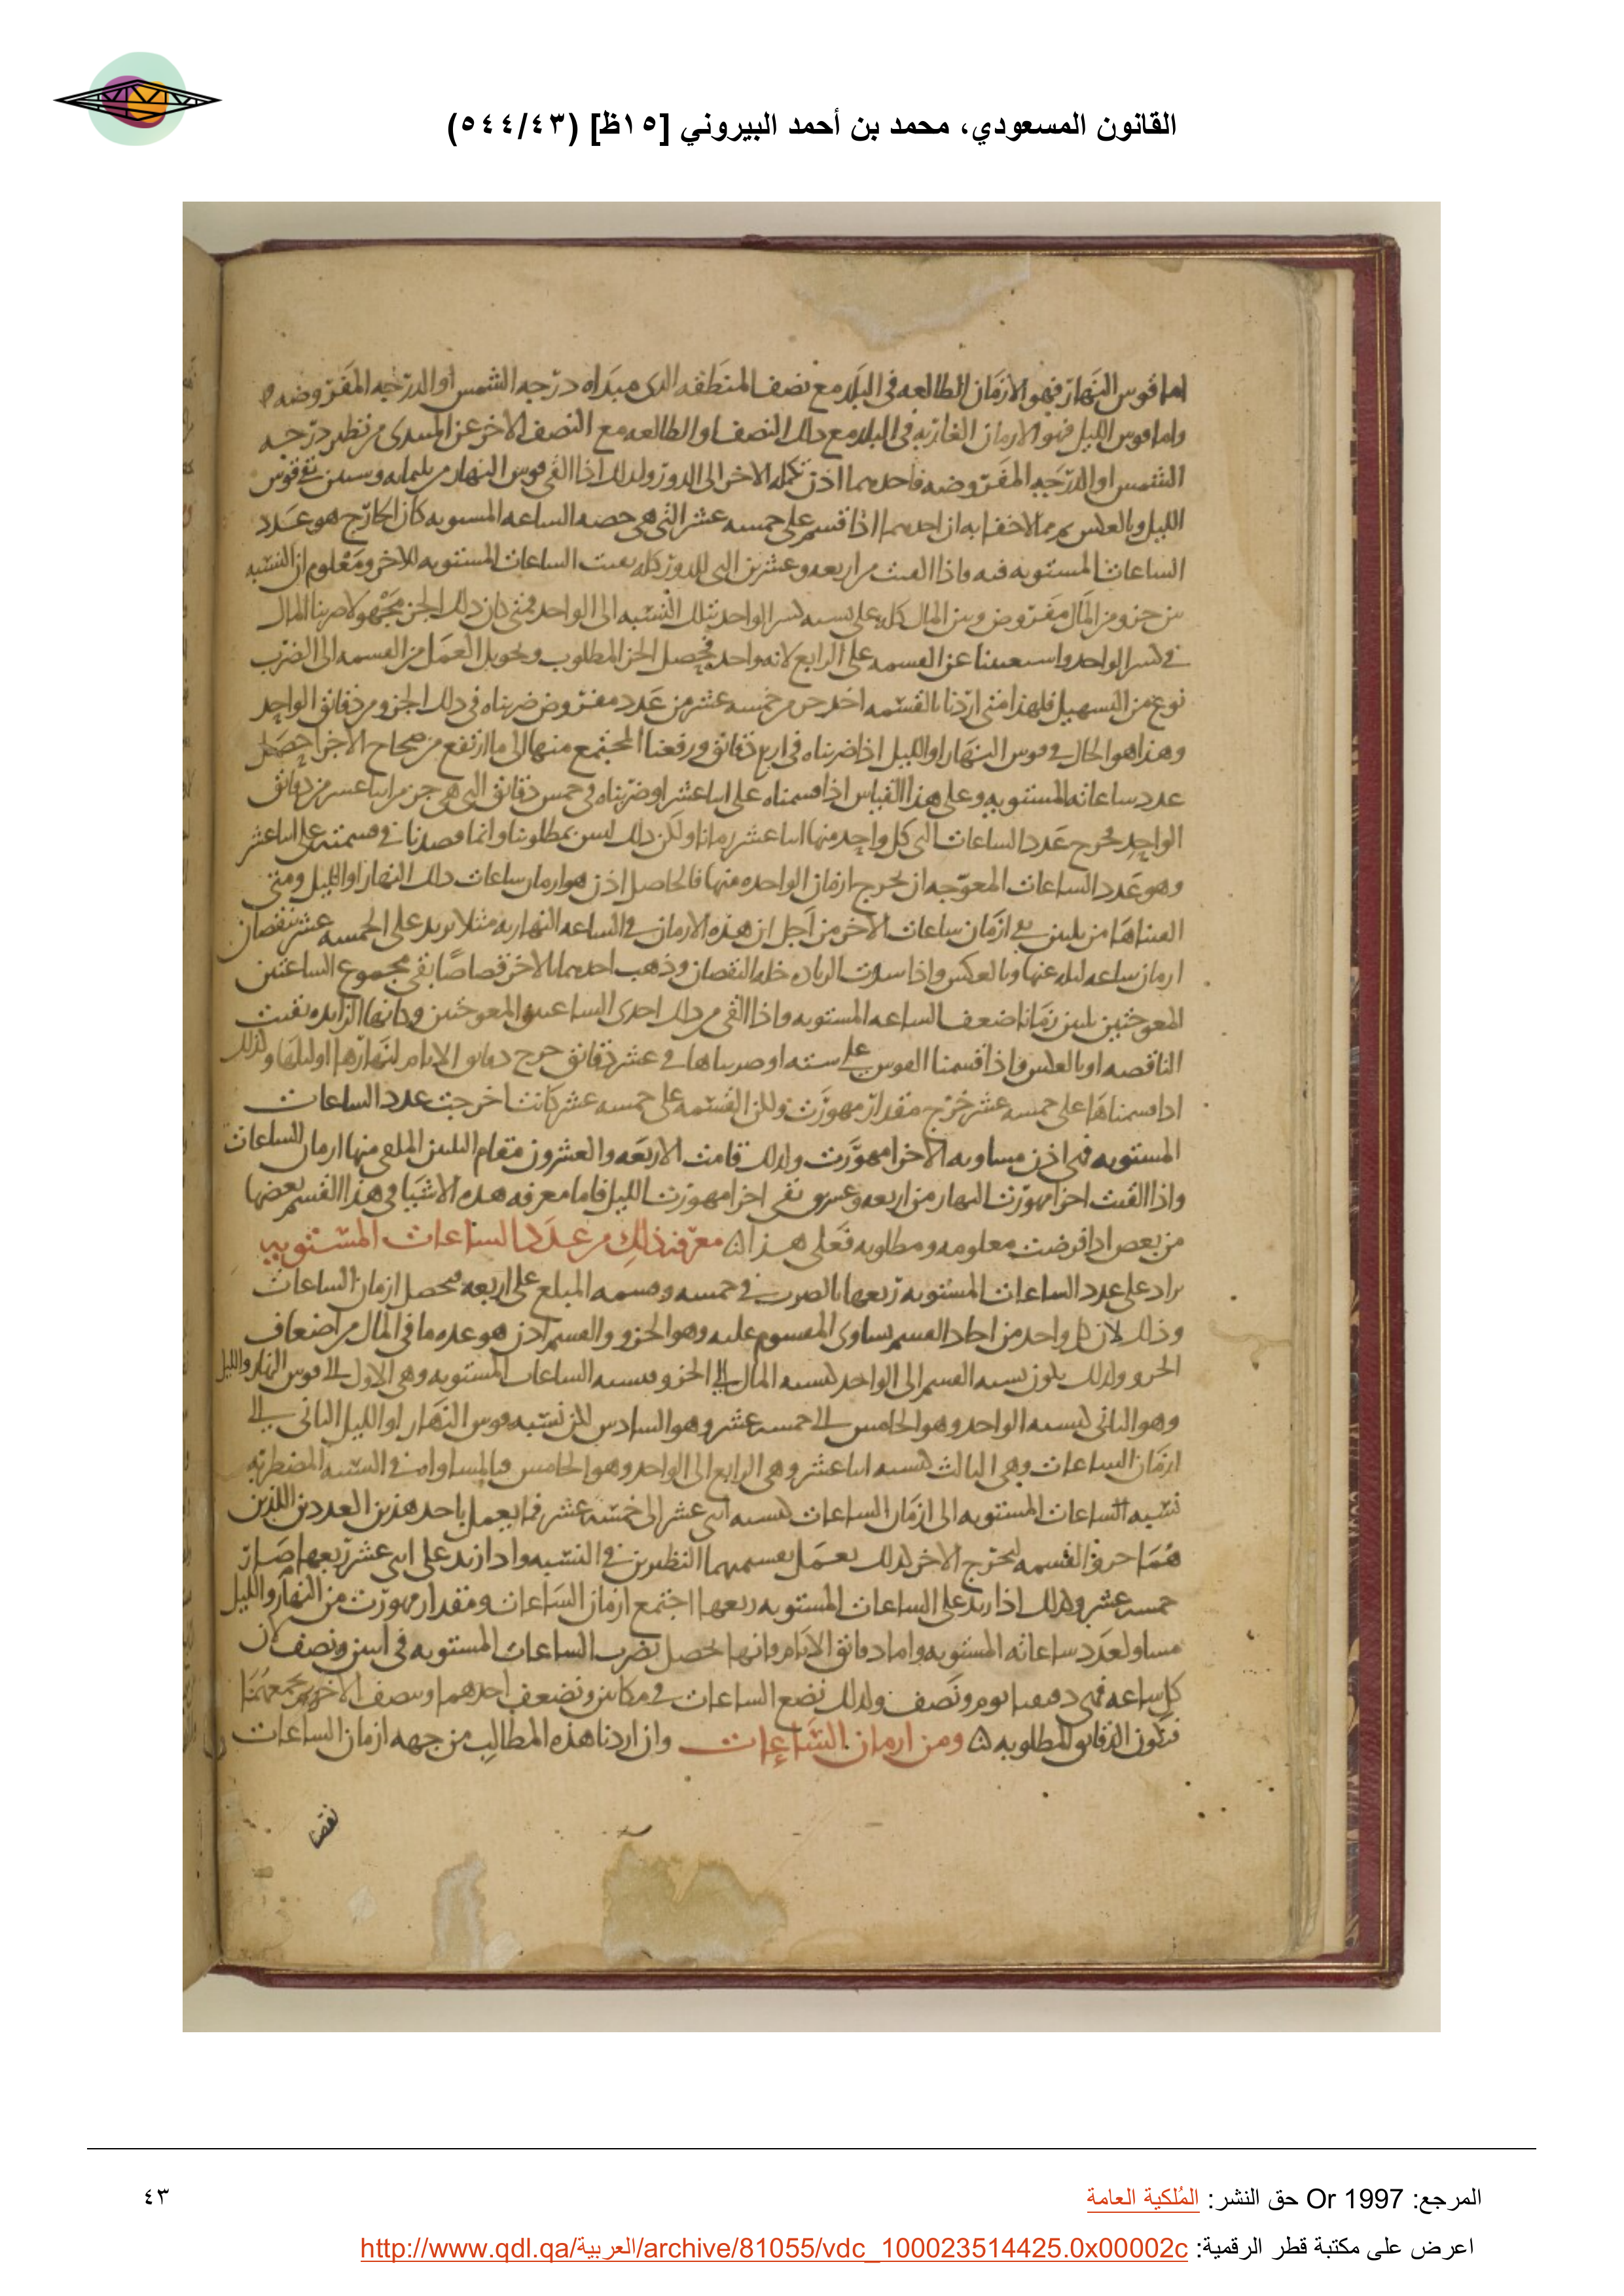 القانون المسعودي، محمد بن أحمد البيروني [١٥ظ] (٥٤٤/٤٣)
اما قوس النهار فهو الازمان الطالعه فى البلد مع نصف المنطقه الذى مبداه درجه الشمس او الدرجه المفروضه
واما قوس الليل فهو الازمان الغاربه فى البلد مع ذلك النصف او الطالعه مع النصف الاخر عن المبتدى من نظير درجه
الشمس او الدرجه المفروضه فاحدهما اذن تكمله الاخر الى الدور ولذلك اذا القى قوس النهار من ثلثمايه وستين بقى قوس
الليل وبالعكس ومما لاخفا به ان احدهما اذا قسم على خمسه عشر التى هى حصه الساعه المستويه كان الخارج هو عدد
الساعات المستويه فيه واذا القيت من اربعه وعشرين التى للدور كله بقيت الساعات المستويه للاخر ومعلوم ان النسبه
بين جزو من المال مفروض وبين المال كله على نسبه كسر الواحد بتلك النسبه الى الواحد فمتى كان ذلك الجز مجهولا ضربنا المال
فى كسر الواحد واستغنينا عن القسمه على الرابع لانه واحد فيحصل الجز المطلوب وتحويل العمل من القسمه الى الضرب
نوع من التسهيل فلهذا متى اردنا بالقسمه اخذ جز من خمسه عشر من عدد مفروض ضربناه فى ذلك الجزو من دقائق الواحد
وهذا هو الحال فى قوس النهار او الليل اذا ضربناه فى اربع دقائق ورفعنا المجتمع منها الى ما ارتفع من صحاح الاجزا حصل
عدد ساعاته المستويه وعلى هذا القياس اذا قسمناه على اثنا عشر او ضربناه فى خمس دقائق التى هى جز من اثنا عشر من دقائق
الواحد يخرج عدد الساعات التى كل واحد منها اثنا عشر زمانا ولكن ذلك ليس بمطلوبنا وانما قصدنا فى قسمته على اثنا عشر
وهو عدد الساعات المعوجه ان يخرج ازمان الواحده منها فالحاصل اذن هو ازمان ساعات ذلك النهار او الليل ومتى
القيناها من ثلثين بقى ازمان ساعات الاخر من اجل ان هذه الازمان فى الساعه النهاريه مثلا تزيد على الخمسه عشر بنقصان
ازمان ساعه ليله عنها وبالعكس واذا سدت الزياده خله النقصان وذهب احدهما بالاخر قصاصا بقى مجموع الساعتين
المعوجتين ثلثين زمانا ضعف الساعه المستويه واذا القى من ذلك احدى الساعتين المعوجتين وكانها الزايده بقيت
الناقصه او بالعكس فاذا قسمنا القوس على سته او ضربناها فى عشر دقائق خرج دقائق الايام لنهارها او ليلها ولذلك
اذا قسمناها على خمسه عشر خرج مقدار مهورت ولكن القسمه على خمسه عشر كانت اخرجت عدد الساعات
المستويه فهى اذن مساويه لاجزا مهورت ولذلك قامت الاربعه والعشرون مقام الثلثين الملقى منها ازمان الساعات
واذا القيت اجزا مهورت النهار من اربعه وعشرين بقى اجزا مهورت الليل فاما معرفه هذه الاشيا فى هذا القسم بعضها
من بعض اذا فرضت معلومه ومطلوبه فعلى هذا معرفه ذلك من عدد الساعات المستويه
يزاد على عدد الساعات المستويه ربعها بالضرب فى خمسه وقسمه المبلغ على اربعه فيحصل ازمان الساعات
وذلك لان كل واحد من احاد القسم يساوى المقسوم عليه وهو الجزو والقسم اذن هو عده ما فى المال من اضعاف
الجزو ولذلك يكون نسبه القسم الى الواحد كنسبه المال الى الجزو فنسبه الساعات المستويه وهى الاول الى قوس النهار والليل
وهو الثانى كنسبه الواحد وهو الخامس الى خمسه عشر وهو السادس لكن نسبه قوس النهار او الليل الثانى الى
ازمان الساعات وهى الثالث كنسبه اثنا عشر وهى الرابع الى الواحد وهو الخامس فبالمساواه فى النسبه المضطربه
نسبه الساعات المستويه الى ازمان الساعات كنسبه اثنى عشر الى خمسه عشر فما يعمل باحد هذين العددين اللذين
هما القسمه ليخرج الاخر كذلك يعمل بقسميهما النظيرين فى النسبه واذا زيد على اثنى عشر ربعها صار
خمسه عشر وكذلك اذا زيد على الساعات المستويه ربعها اجتمع ازمان الساعات ومقدار مهورت من النهار والليل
مساو لعدد ساعاته المستويه واما دقائق الايام فانها تحصل بضرب الساعات المستويه فى اثنين ونصف لان
كل ساعه فهى دقيقتا يوم ونصف ولذلك نضع الساعات فى مكانين ونضعف احدهما وننصف الاخر ونجمعهما
فتكون الدقائق المطلوبه ومن ازمان الساعات وان اردنا هذه المطالب من جهه ازمان الساعات
نقصنا
المرجع: Or 1997 حق النشر: المُلكية العامة
٤٣
اعرض على مكتبة قطر الرقمية: http://www.qdl.qa/العربية/archive/81055/vdc_100023514425.0x00002c